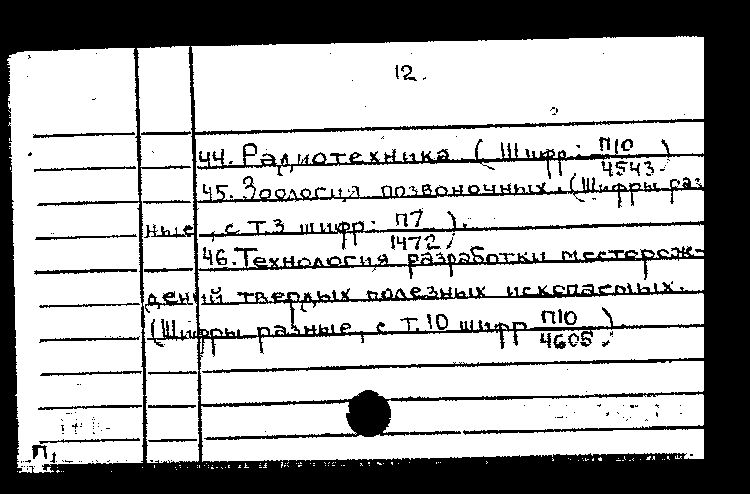 12.
44. Радиотехника (Шифр: П10/4543.)
45. Зоология позвоночных. (Шифры раз
ные, с Т.3 шифр: П7/1472).
46. Технология разработки месторож-
дений твердых полезных ископаемых.
(Шифры разные, с Т.10 шифр П10/4605.)
П,